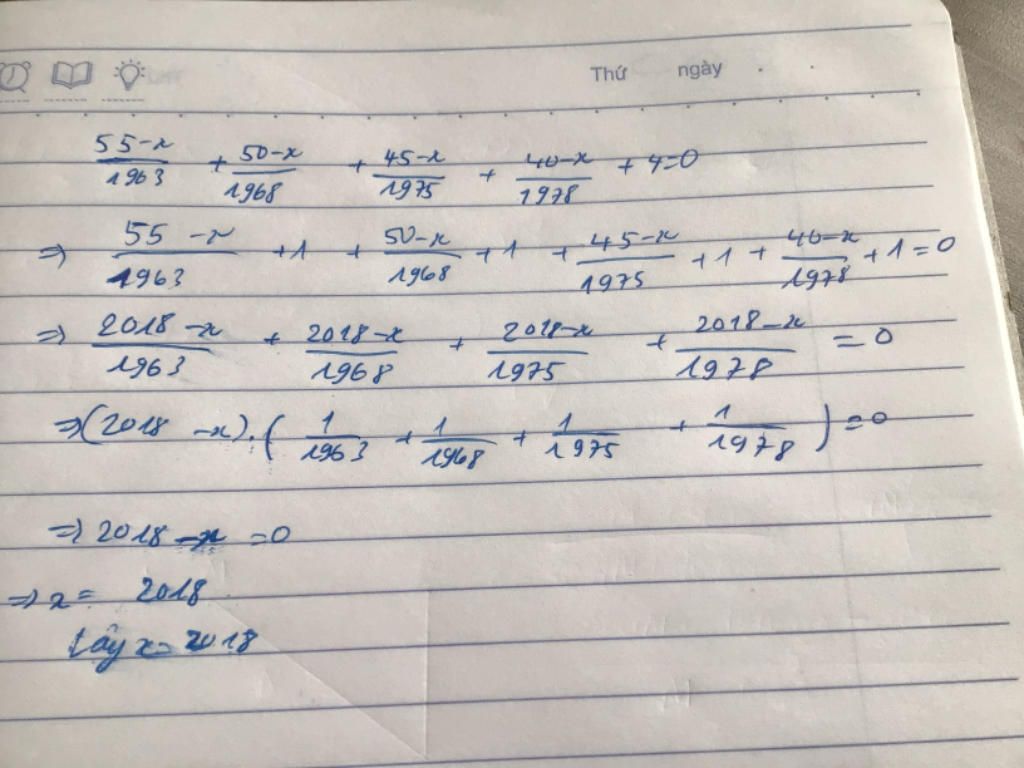 Thứ ngày
55-x/1963 + 50-x/1968 + 45-x/1975 + 40-x/1978 + 4=0
=> 55-x/1963 +1 + 50-x/1968 +1 + 45-x/1975 +1 + 40-x/1978 +1=0
=> 2018-x/1963 + 2018-x/1968 + 2018-x/1975 + 2018-x/1978 = 0
=> (2018-x).(1/1963 + 1/1968 + 1/1975 + 1/1978)=0
=> 2018-x=0
=> x= 2018
Vậy x=2018